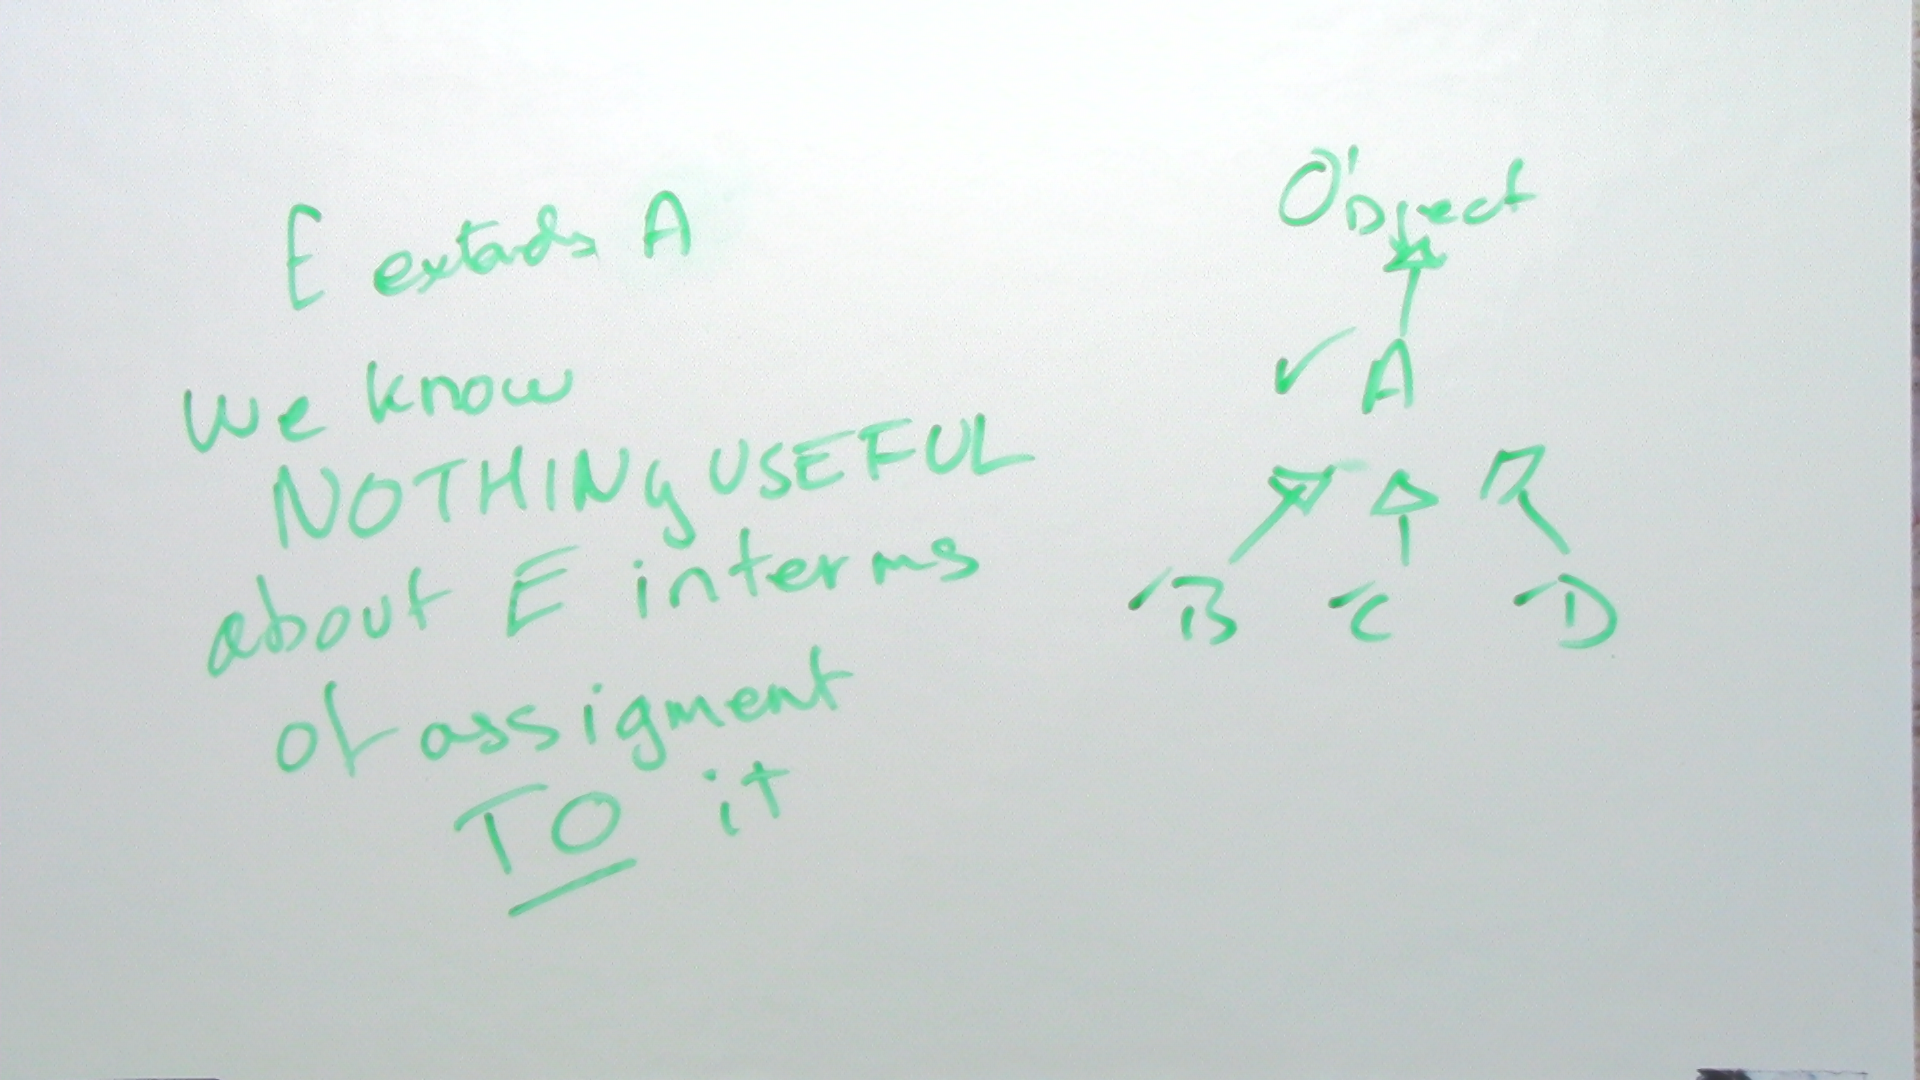 E extends A
we know
NOTHING USEFUL
about E interms
of assigment
TO it
Object
A
B C D